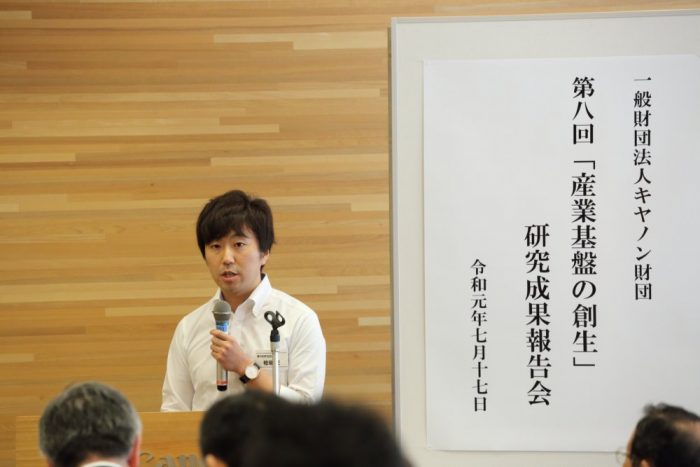 一般財団法人キヤノン財団
第八回「産業基盤の創生」
研究成果報告会
令和元年七月十七日